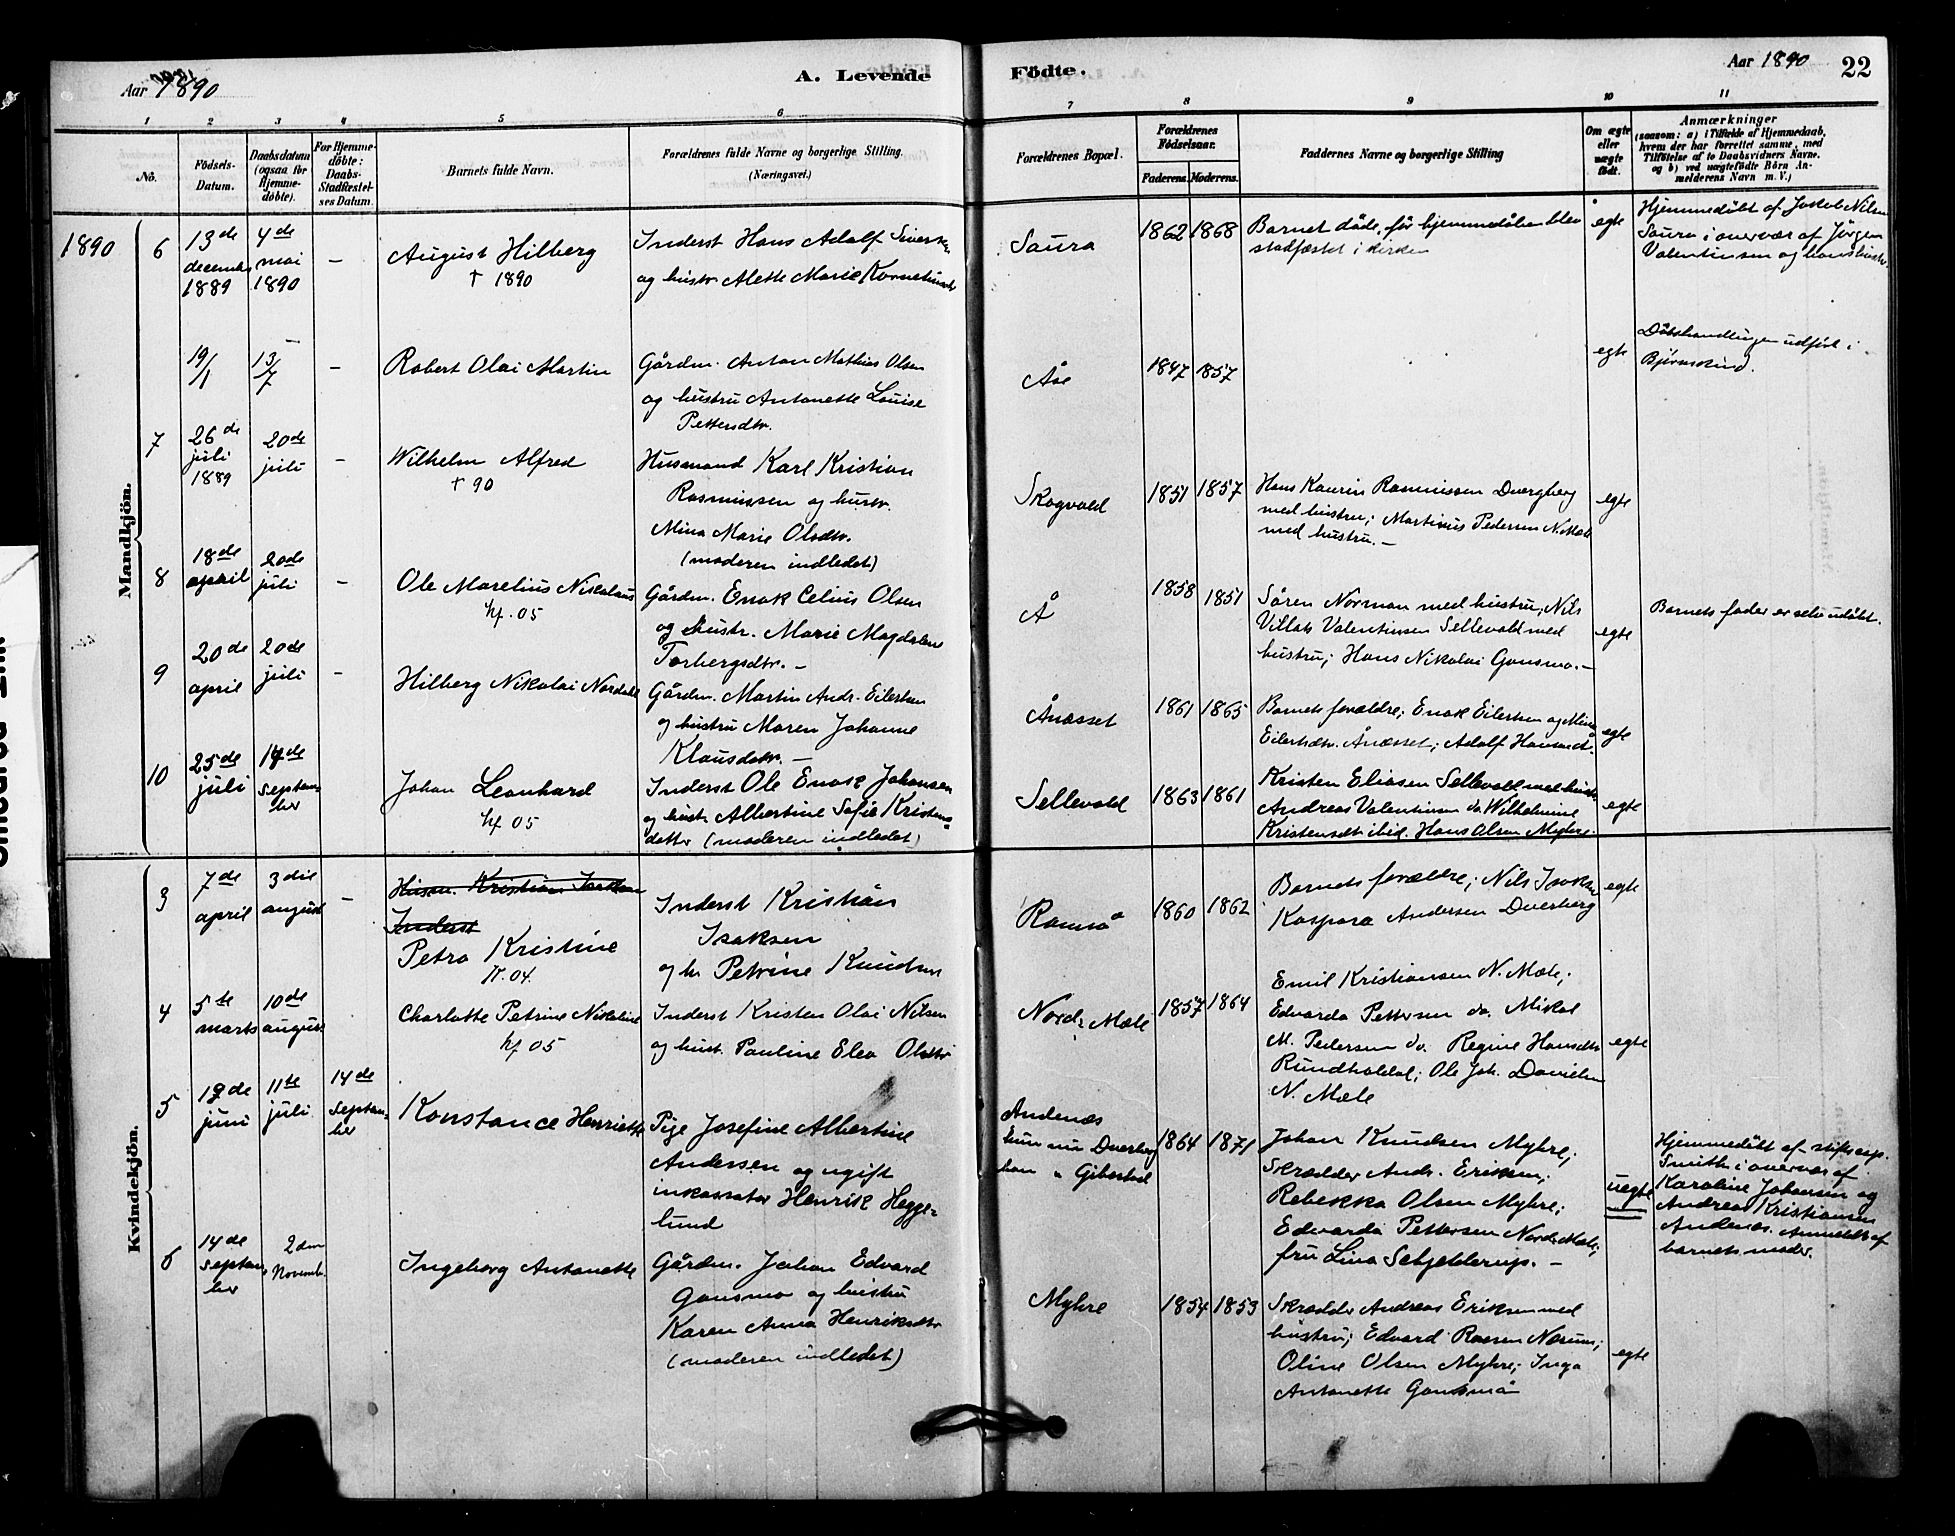 Aar 1890
A. Levende
Födte.
Aar 1890
22
1 2 3 4 5 6 7 8 9 10 11
No.
Födsels-
Datum.
Daabsdatum
(ogsaa for
Hjemme-
döbte).
For Hjemme-
döbte:
Daabs-
Stadfæstel-
ses Datum.
Barnets fulde Navn.
Forældrenes fulde Navne og borgerlige Stilling.
(Næringsvei.)
Forældrenes Bopæl.
Forældrenes
Födselsaar.
Faderens. Moderens.
Faddernes Navne og borgerlige Stilling
Om ægte
eller
uægte
födt.
Anmærkninger
(saasom: a) i Tilfælde af Hjemmedaab,
hvem der har forrettet samme, med
Tilföielse af to Daabsvidners Navne.
og b) ved uægtefödte Börn An-
melderens Navn m. V.)
Mandkjön.
1890
6
13de
decembr
1889
4de
mai
1890
–
August Hilberg
† 1890
Inderst Hans Adolf
og hustr. Alette Marie
Saura
1862 1868
Barnet döde, för hjemmedåben blev
stadfæstet i kirken
egte
Hjemmedöbt af Jakob Nilsen
Saura i overvær af Jörgen
Valentinsen og hans hustr.
19/1
13/7
–
Robert Olai Martin
Gårdm. Anton Mathias Olsen
og hustru Antonette Louise
Pettersdtr.
Åse
1847 1857
egte
Dåbshandlingen udfört i
Bjørnskind.
7
26de
juli
1889
20de
juli
–
Wilhelm Alfred
† 90
Husmand Karl Kristian
Rasmussen og hustr.
Mina Marie Olsdtr.
(moderen indledet)
Skogvold
1851 1857
Hans Kaurin Rasmussen Dvergberg
med hustru; Martinus Pedersen N. Mele
med hustru. –
egte
8
18de
april
20de
juli
–
Ole Marelius Nikolaus
kf. 05
Gårdm. Enok Celius Olsen
og hustr. Marie Magdalene
Torbergsdtr. –
Å
1858 1851
Sören Norman med hustru; Nils
Villats Valentinsen Sellevold med
hustru; Hans Nikolai Gansmo. –
egte
Barnets fader er selv udöbt.
9
20de
april
20de
juli
–
Hilberg Nikolai Nordahl
Gårdm. Martin Andr. Eilertsen
og hustru Maren Johanne
Klausdatr. –
Ånæsset
1861 1865
Barnets forældre; Enok Eilertsen og Mina
Eilertsdtr. Ånæsset; Adolf Hansen do.
egte
10
25de
juli
14de
Septem-
ber
Johan Leonhard
kf 05
Inderst Ole Enok Johansen
og hustr. Albertine Sofie Kristens-
datter (moderen indledet)
Sellevold
1863 1861
Kristen Eliasen Sellevold med hustr.
Andreas Valentinsen do Wilhelmine
Kristensdtr ibid. Hans Olsen Myhre.
egte
Kvindekjön.
3
7de
april
3die
august
–
Husm. Kristian Isaksen
Inderst
Petra Kristine
04.
Inderst Kristian
Isaksen
og h. Petrine Knudsen
Ramså
1860 1862
Barnets forældre; Nils Isaksen
Kaspara Andersen Dverberg
egte
4
5te
marts
10de
august
Charlotte Petrine Nikoline
kf 05
Inderst Kristen Olai Nilsen
og hust. Pauline Elea Olsdtr
Nordr. Mele
1857 1864
Emil Kristiansen N. Mele;
Edvarda Pettersen do. Mikal
M. Pedersen do. Regine Hansdtr
Rundholdal; Ole Joh. Danielsen
N. Mele
egte
5
19de
juni
11te
juli
14de
Septem-
ber
Konstance Henriette
Pige Josefine Albertine
Andersen og ugift
inkassator Henrik Hegge-
lund
Andenæs
hun nu Dverberg
han " Gibostad
1864 1871
Johan Knudsen Myhre;
Skrædder Andr. Eriksen;
Rebekka Olsen Myhre;
Edvarda Pettersen Nordr. Mele;
fru Lina Schjelderup. –
uegte
Hjemmedöbt af stiftscap.
Smith i overvær af
Karoline Johansen og
Andreas Kristiansen
Andenæs. Anmeldt af
barnets moder.
6
14de
Septem-
ber
2den
Novembr.
Ingeborg Antonette
Gårdm. Johan Edvard
Gansmo og hustru
Karen Anna Henriksdtr
(moderen indledet)
Myhre
1854 1853
Skrædder Andreas Eriksen med
hustru; Edvard Roesen Næsum;
Oline Olsen Myhre; Inga
Antonette Gansmo
egte